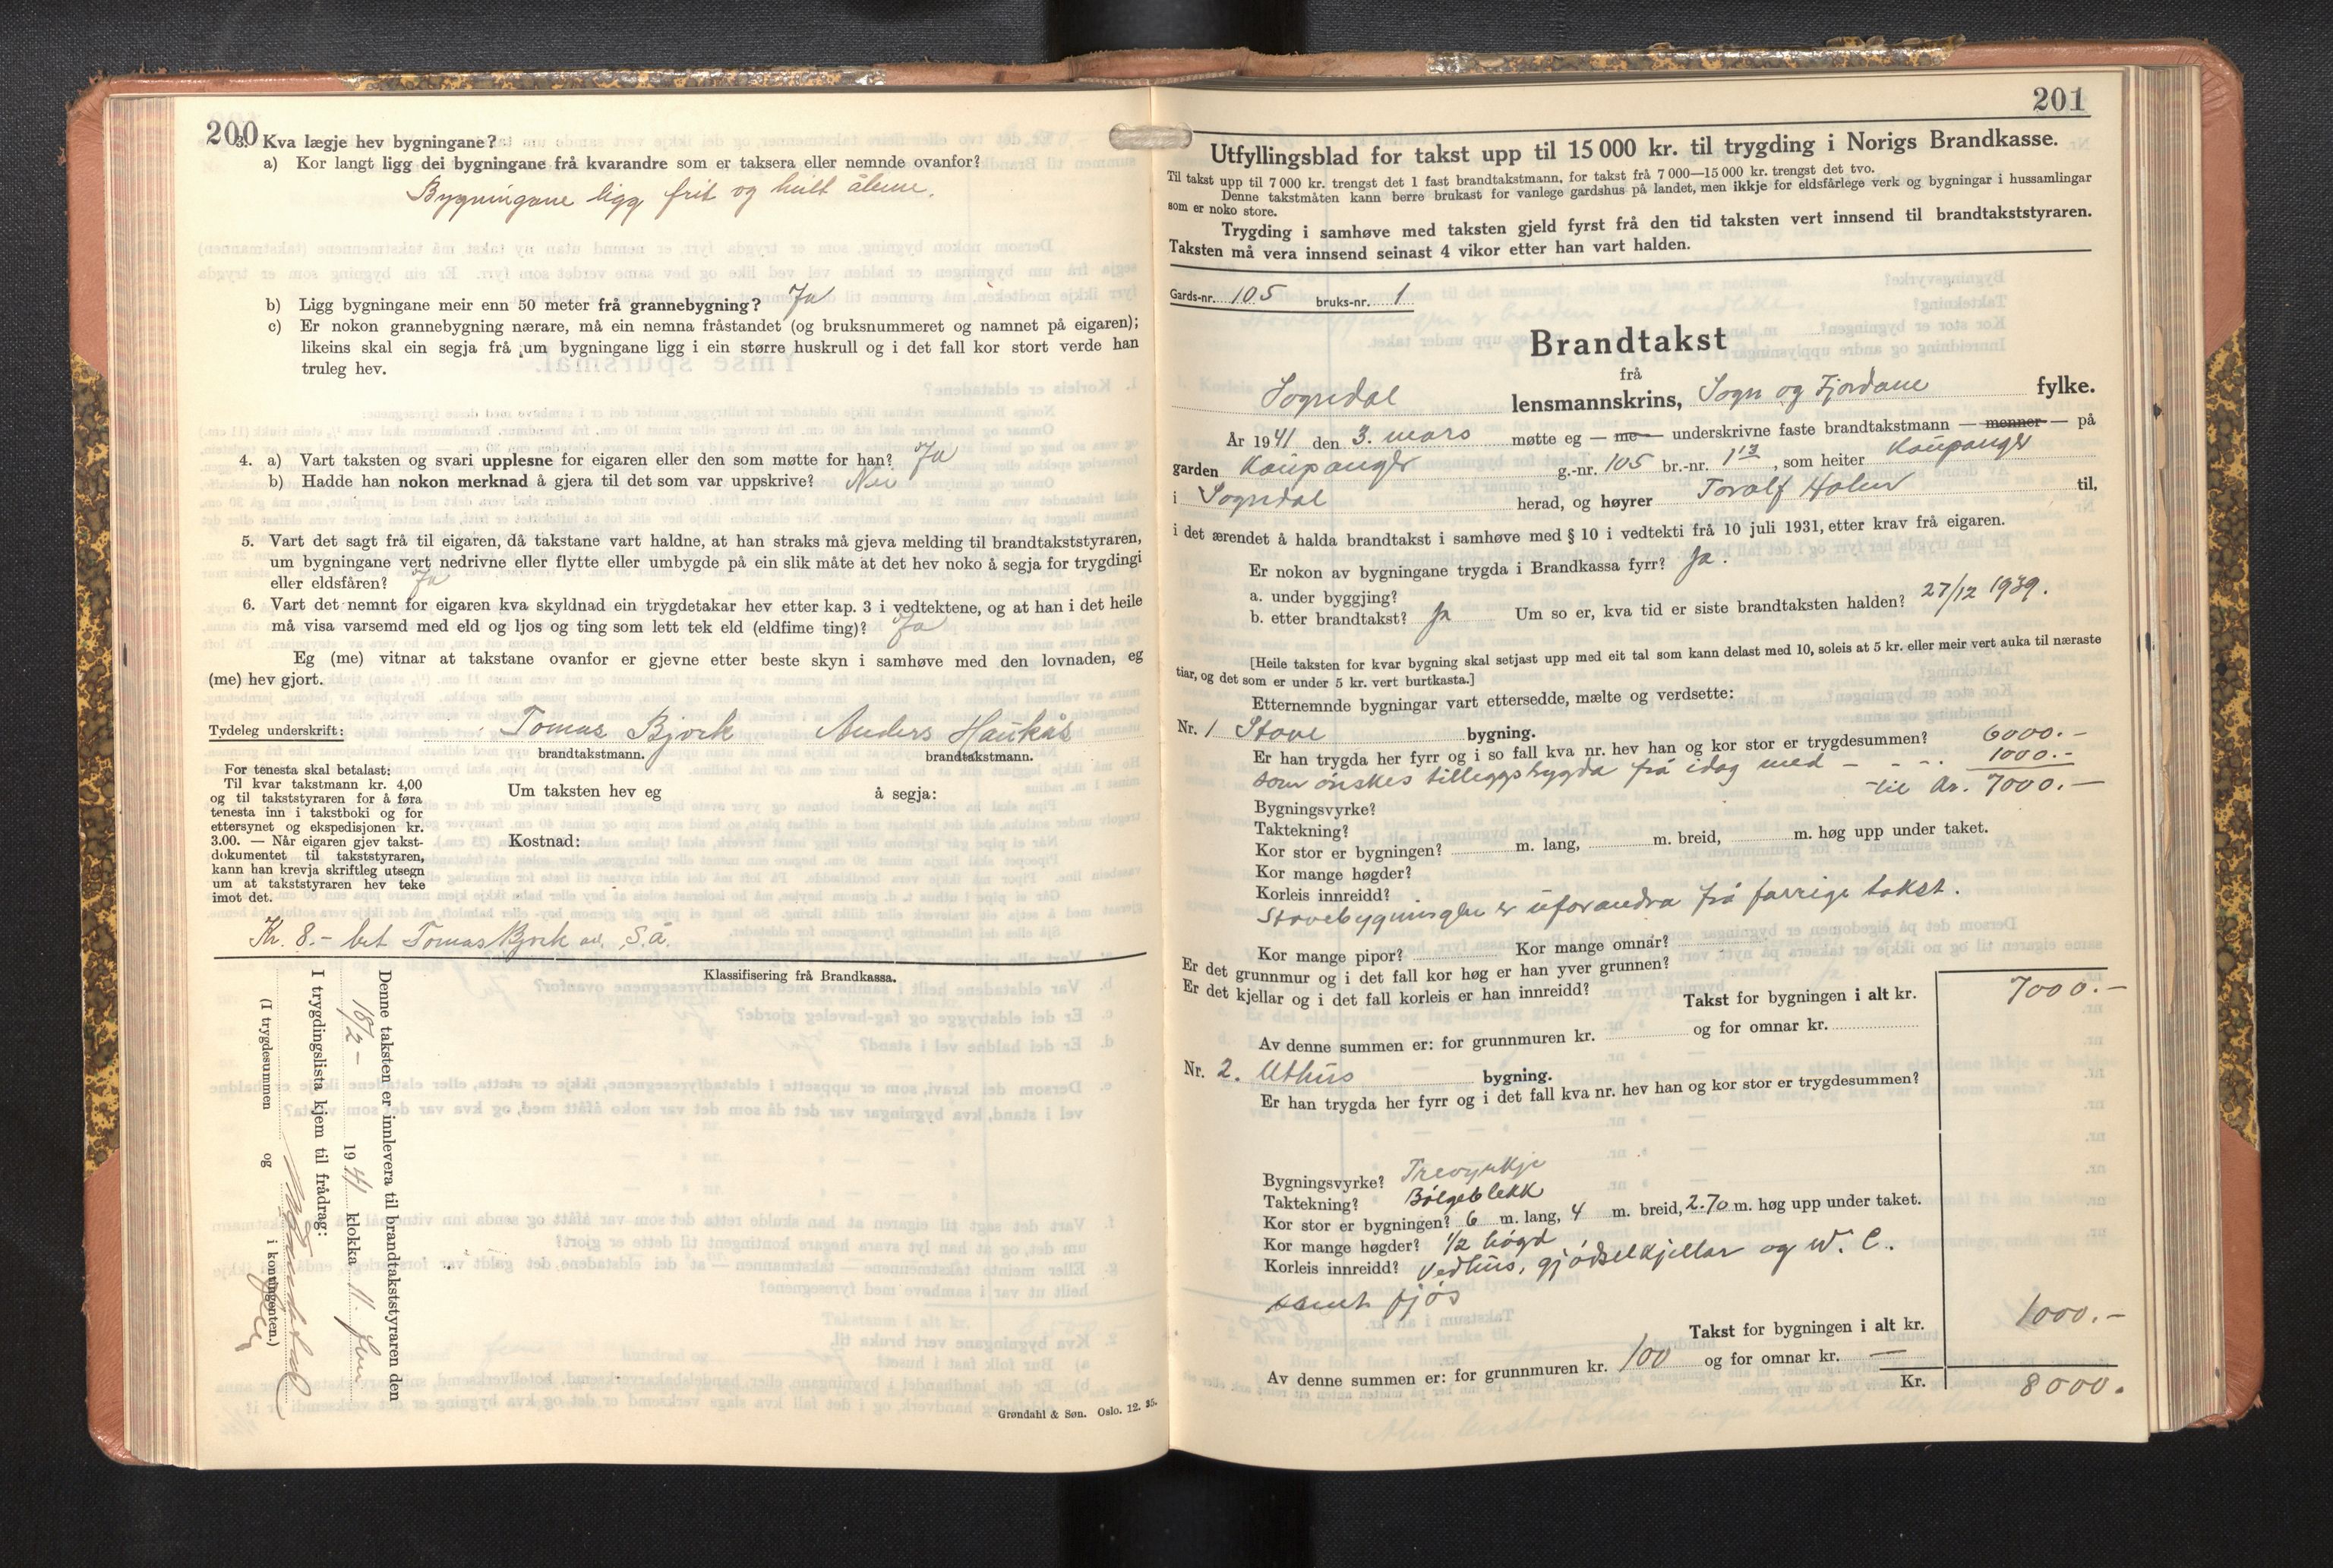 200
3. Kva lægje hev bygningane?
a) Kor langt ligg dei bygningane frå kvarandre som er taksera eller nemnde ovanfor?
Bygningane ligg frit og heilt åleine.
b) Ligg bygningane meir enn 50 meter frå grannebygning? Ja
c) Er nokon grannebygning nærare, må ein nemna fråstandet (og bruksnummeret og namnet på eigaren);
likeins skal ein segja frå um bygningane ligg i ein større huskrull og i det fall kor stort verde han
truleg hev.
4. a) Vart taksten og svari upplesne for eigaren eller den som møtte for han? Ja
b) Hadde han nokon merknad å gjera til det som var uppskrive? Nei
5. Vart det sagt frå til eigaren, då takstane vart haldne, at han straks må gjeva melding til brandtakststyraren,
um bygningane vert nedrivne eller flytte eller umbygde på ein slik måte at det hev noko å segja for trygdingi
eller eldsfåren? Ja
6. Vart det nemnt for eigaren kva skyldnad ein trygdetakar hev etter kap. 3 i vedtektene, og at han i det heile
må visa varsemd med eld og ljos og ting som lett tek eld (eldfime ting)? Ja
Eg (me) vitnar at takstane ovanfor er gjevne etter beste skyn i samhøve med den lovnaden, eg
(me) hev gjort.
Tydeleg underskrift: Tomas Bjork Anders Haukås
brandtakstmann. brandtakstmann.
For tenesta skal betalast:
Til kvar takstmann kr. 4,00
og til takststyraren for å føra
tenesta inn i takstboki og for
ettersynet og ekspedisjonen kr.
3.00. — Når eigaren gjev takst-
dokumentet til takststyraren,
kann han krevja skriftleg utsegn
um at takststyraren hev teke
imot det.
Um taksten hev eg å segja:
Kostnad:
Kr. 8.- bet Tomas Bjork S.å.
Klassifisering frå Brandkassa.
Denne taksten er innlevera til brandtakststyraren den
18/2 - 1941 klokka 11.
I trygdingslista kjem til frådrag:
(I trygdesummen og i kontingenten.)
Grøndahl & Søn. Oslo. 12. 35.
201
Utfyllingsblad for takst upp til 15 000 kr. til trygding i Norigs Brandkasse.
Til takst upp til 7 000 kr. trengst det 1 fast brandtakstmann, for takst frå 7 000—15 000 kr. trengst det tvo.
Denne takstmåten kann berre brukast for vanlege gardshus på landet, men ikkje for eldsfårlege verk og bygningar i hussamlingar
som er noko store.
Trygding i samhøve med taksten gjeld fyrst frå den tid taksten vert innsend til brandtakststyraren.
Taksten må vera innsend seinast 4 vikor etter han vart halden.
Gards-nr. 105 bruks-nr. 1
Brandtakst
frå
Sogndal lensmannskrins, Sogn og Fjordane fylke.
År 1941 den 3. mars møtte eg — me — underskrivne faste brandtakstmann — menner — på
garden Kaupanger g.-nr. 105 br.-nr. 1¹³, som heiter Kaupanger
i Sogndal herad, og høyrer Toralf Holen til,
i det ærendet å halda brandtakst i samhøve med § 10 i vedtekti frå 10 juli 1931, etter krav frå eigaren.
Er nokon av bygningane trygda i Brandkassa fyrr? Ja.
a. under byggjing?
b. etter brandtakst? Ja Um so er, kva tid er siste brandtaksten halden? 27/12 1939.
[Heile taksten for kvar bygning skal setjast upp med eit tal som kann delast med 10, soleis at 5 kr. eller meir vert auka til næraste
tiar, og det som er under 5 kr. vert burtkasta.]
Etternemnde bygningar vart ettersedde, mælte og verdsette:
Nr. 1 Stove bygning.
Er han trygda her fyrr og i so fall kva nr. hev han og kor stor er trygdesummen? 6000.-
som ønskes tilleggstrygda frå idag med - - - . 1000.-
til kr. 7000.-
Bygningsvyrke?
Taktekning?
Kor stor er bygningen? m. lang, m. breid, m. høg upp under taket.
Kor mange høgder?
Korleis innreidd?
Stovebygningen er uforandra frå forrige takst.
Kor mange pipor? Kor mange omnar?
Er det grunnmur og i det fall kor høg er han yver grunnen?
Er det kjellar og i det fall korleis er han innreidd?
Takst for bygningen i alt kr. 7000.-
Av denne summen er: for grunnmuren kr. og for omnar kr.
Nr. 2. Uthus bygning.
Er han trygda her fyrr og i det fall kva nr. hev han og kor stor er trygdesummen?
Bygningsvyrke? Trevyrkje
Taktekning? Bølgeblekk
Kor stor er bygningen? 6 m. lang, 4 m. breid, 2.70 m. høg upp under taket.
Kor mange høgder? 1/2 høgd
Korleis innreidd? Vedhus, gjødselkjellar og W. C.
samt fjøs
Takst for bygningen i alt kr. 1000.-
Av denne summen er: for grunnmuren kr. 100 og for omnar kr. —
Kr. 8000.